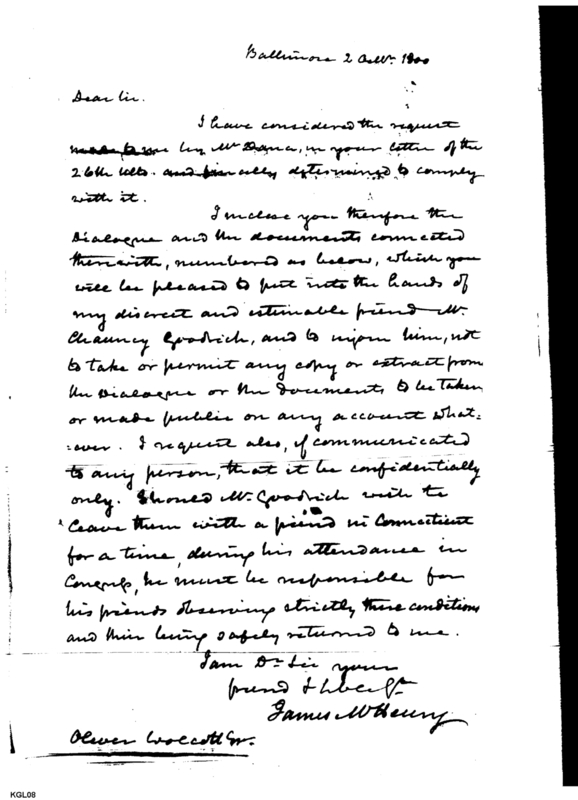 Baltimore 2 Octbr. 1800
Dear Sir.
I have considered the request
made to me by Mr Dana, in your letter of the
26th ulto. and finally determined to comply
with it.
I inclose you therefore the
Dialogue and the documents connected
therewith, numbered as below, which you
will be pleased to put into the hands of
my discreet and estimable friend Mr.
Chauncy Goodrich, and to injoin him, not
to take or permit any copy or extract from
the Dialogue or the documents, to be taken
or made public on any account what=
=ever. I request also, if communicated
to any person, that it be confidentially
only. Should Mr. Goodrich wish to
leave them with a friend in Connecticut
for a time, during his attendance in
Congress, he must be responsible for
his friends observing strictly these conditions
and their being safely returned to me.
I am Dr. Sir your
friend &
James McHenry
Oliver Wolcott Esqr.
KGL08